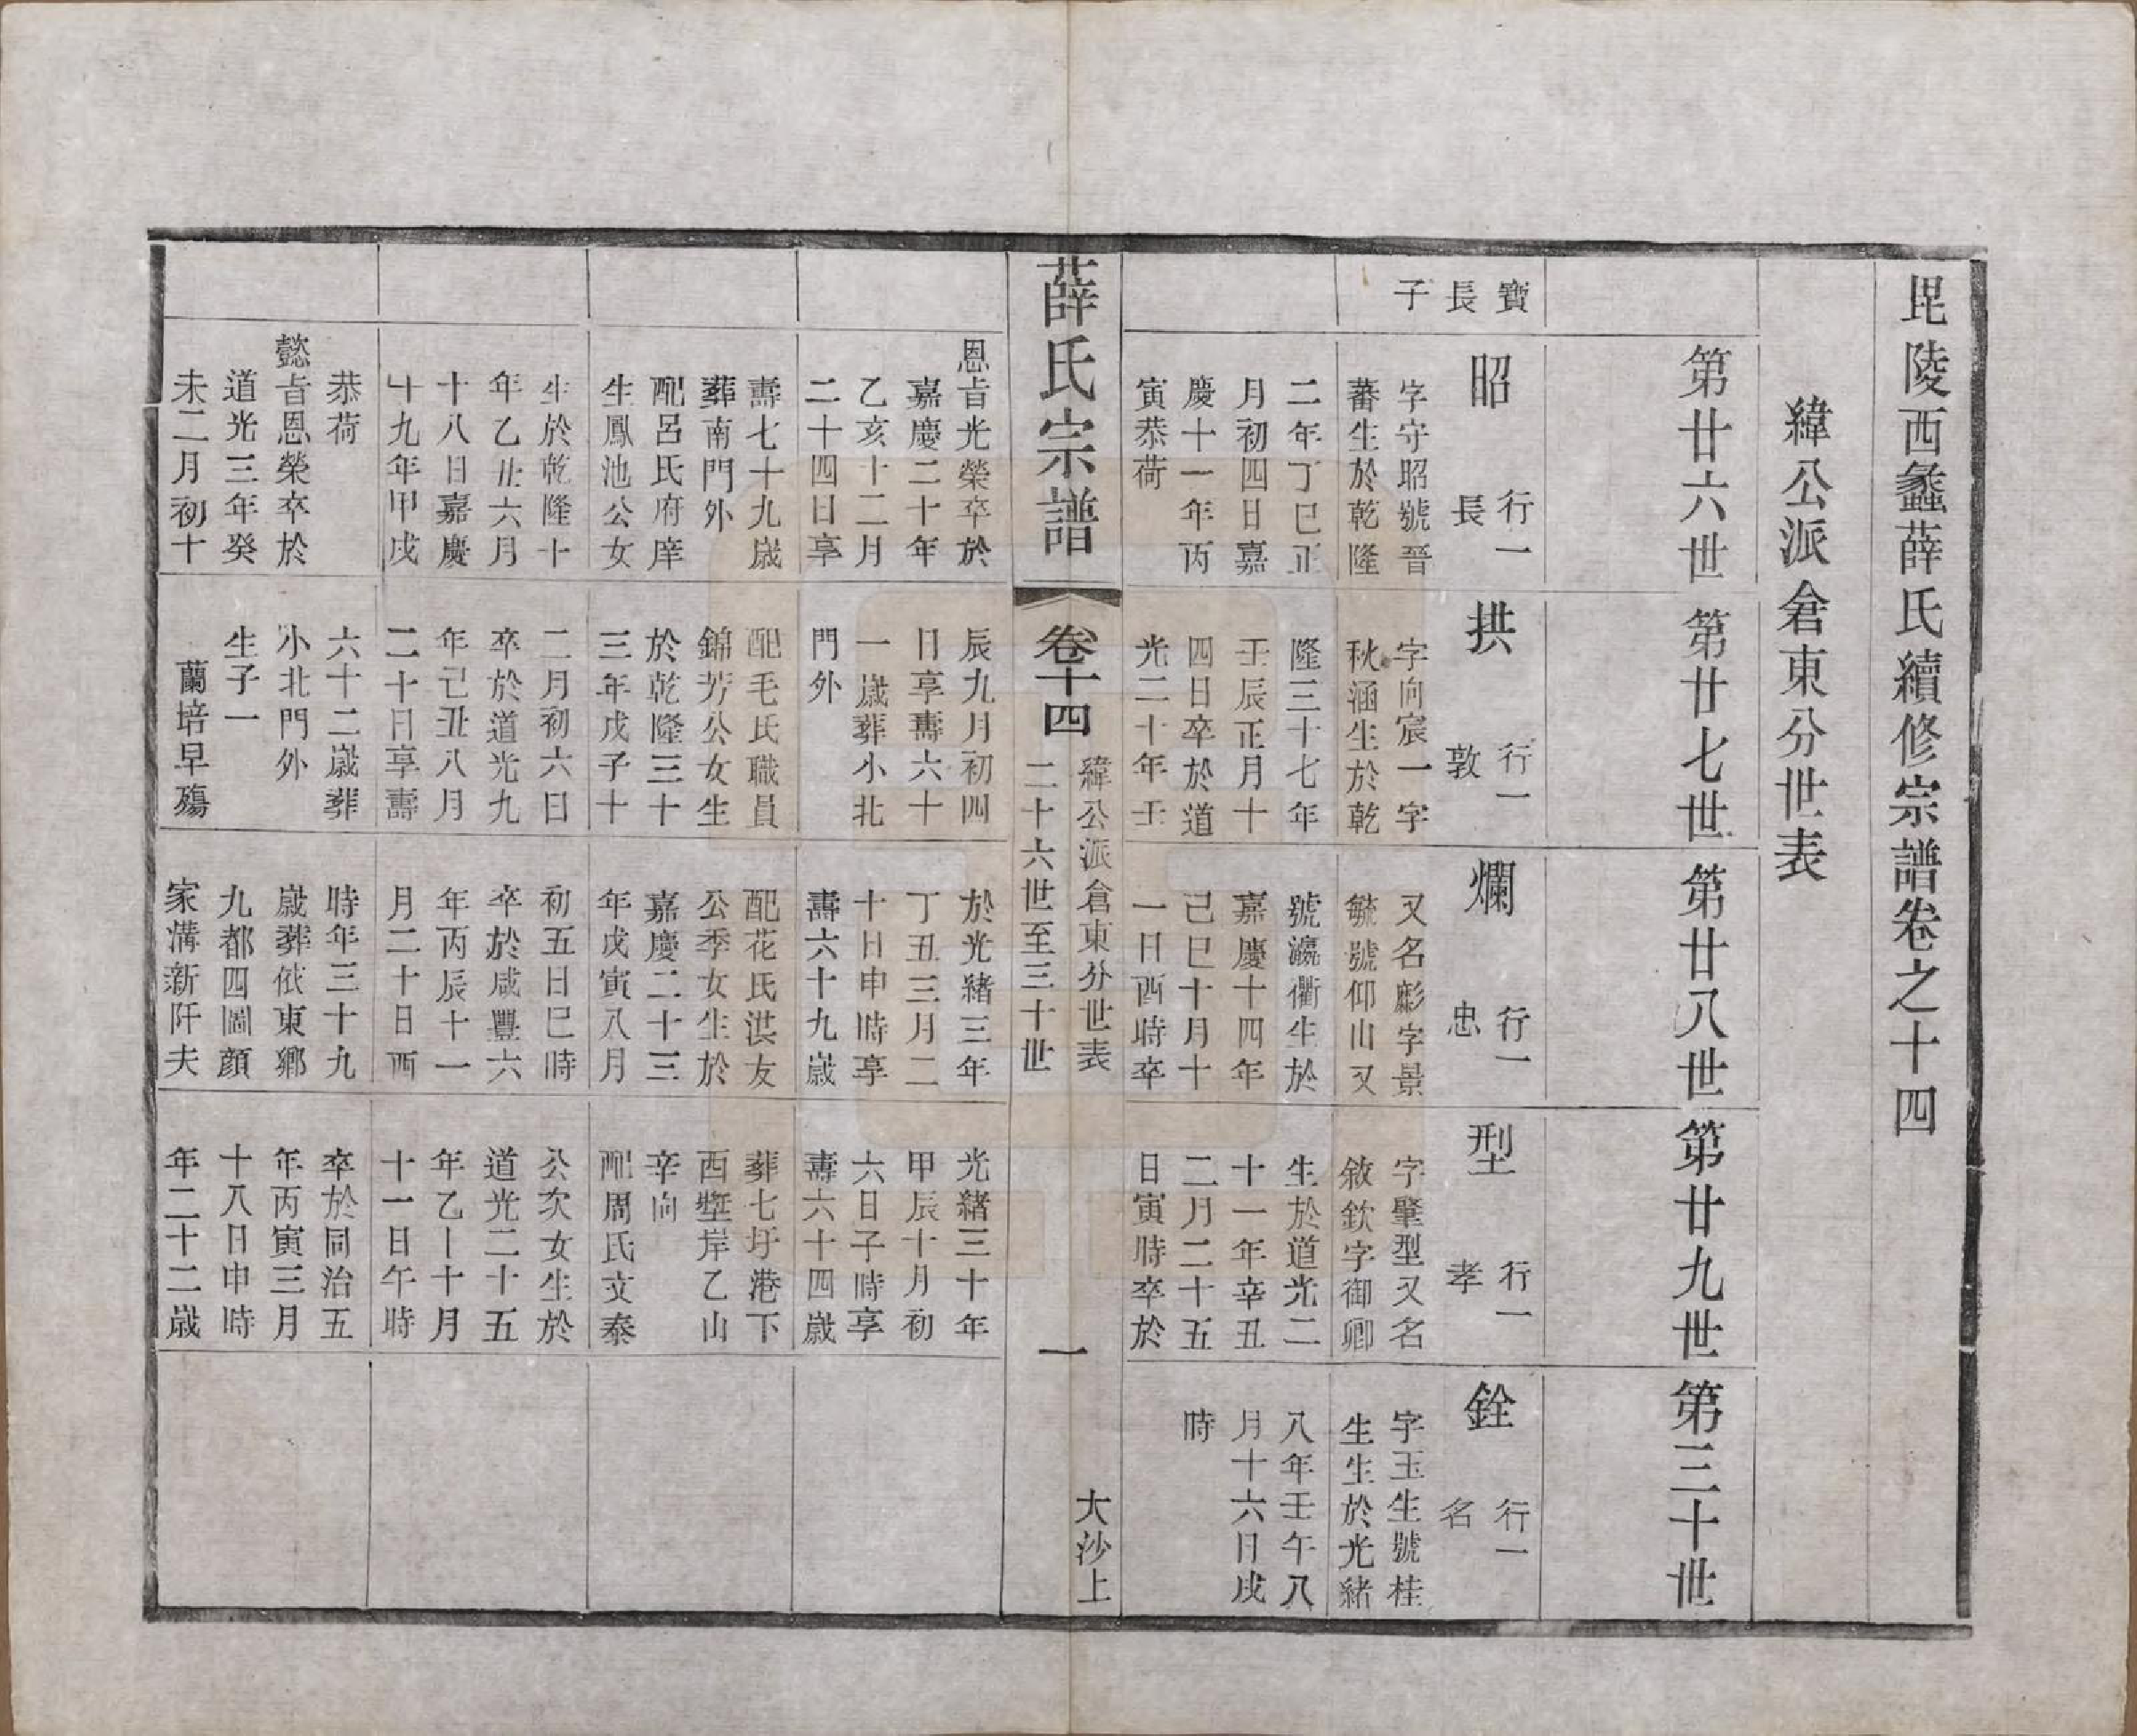 毘陵西蠡薛氏續修宗譜卷之十四
緯公派倉東分世表
第廿六世
第廿七世
第廿八世
第廿九世
第三十世
寶
長
子
昭
行一
長
字守昭號晉
蕃生於乾隆
二年丁巳正
月初四日嘉
慶十一年丙
寅恭荷
恩旨光榮卒於
嘉慶二十年
乙亥十二月
二十四日享
壽七十九歲
葬南門外
配呂氏府庠
生鳳池公女
生於乾隆十
年乙丑六月
十八日嘉慶
十九年甲戌
恭荷
懿旨恩榮卒於
道光三年癸
未二月初十
拱
行一
敦
字向宸一字
秋涵生於乾
隆三十七年
壬辰正月十
四日卒於道
光二十年壬
辰九月初四
日享壽六十
一歲葬小北
門外
配毛氏職員
錦芳公女生
於乾隆三十
三年戊子十
二月初六日
卒於道光九
年己丑八月
二十日享壽
六十二歲葬
小北門外
生子一
蘭培早殤
爛
行一
忠
又名彪字景
毓號仰山又
號瀛衢生於
嘉慶十四年
己巳十月十
一日酉時卒
於光緒三年
丁丑三月二
十日申時享
壽六十九歲
配花氏洪友
公季女生於
嘉慶二十三
年戊寅八月
初五日巳時
卒於咸豐六
年丙辰十一
月二十日酉
時年三十九
歲葬依東鄉
九都四圖顔
家溝新阡夫
型
行一
孝
字肇型又名
敘欽字御卿
生於道光二
十一年辛丑
二月二十五
日寅時卒於
光緒三十年
甲辰十月初
六日子時享
壽六十四歲
葬七圩港下
西壍岸乙山
辛向
配周氏文泰
公次女生於
道光二十五
年乙十月
十一日午時
卒於同治五
年丙寅三月
十八日申時
年二十二歲
銓
行一
名
字玉生號桂
生生於光緒
八年壬午八
月十六日戌
時
薛氏宗譜
卷十四
緯公派倉東分世表
二十六世至三十世
一
大沙上